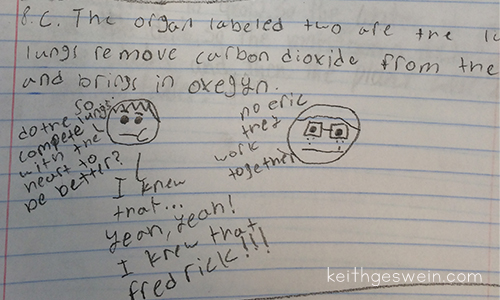 8. C. The organ labeled two are the lu
lungs remove carbon dioxide from the
and brings in oxegyn.
so
do the lungs
compete
with the
heart to
be better?
no eric
they
work
together
I knew
that...
yeah, yeah!
I knew that
fredrick!!!
keithgeswein.com